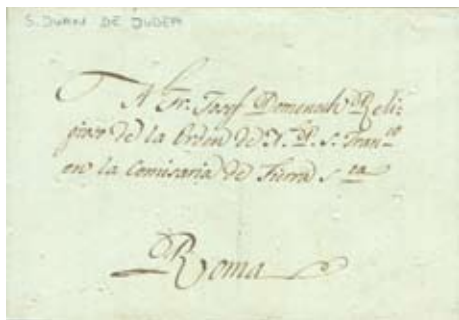 S. JUAN DE JUDEA
A Fr. Josef Domenech Reli-
gioso de la Orden de N. P. S. Franco
en la Comisaria de Tierra Sta
Roma